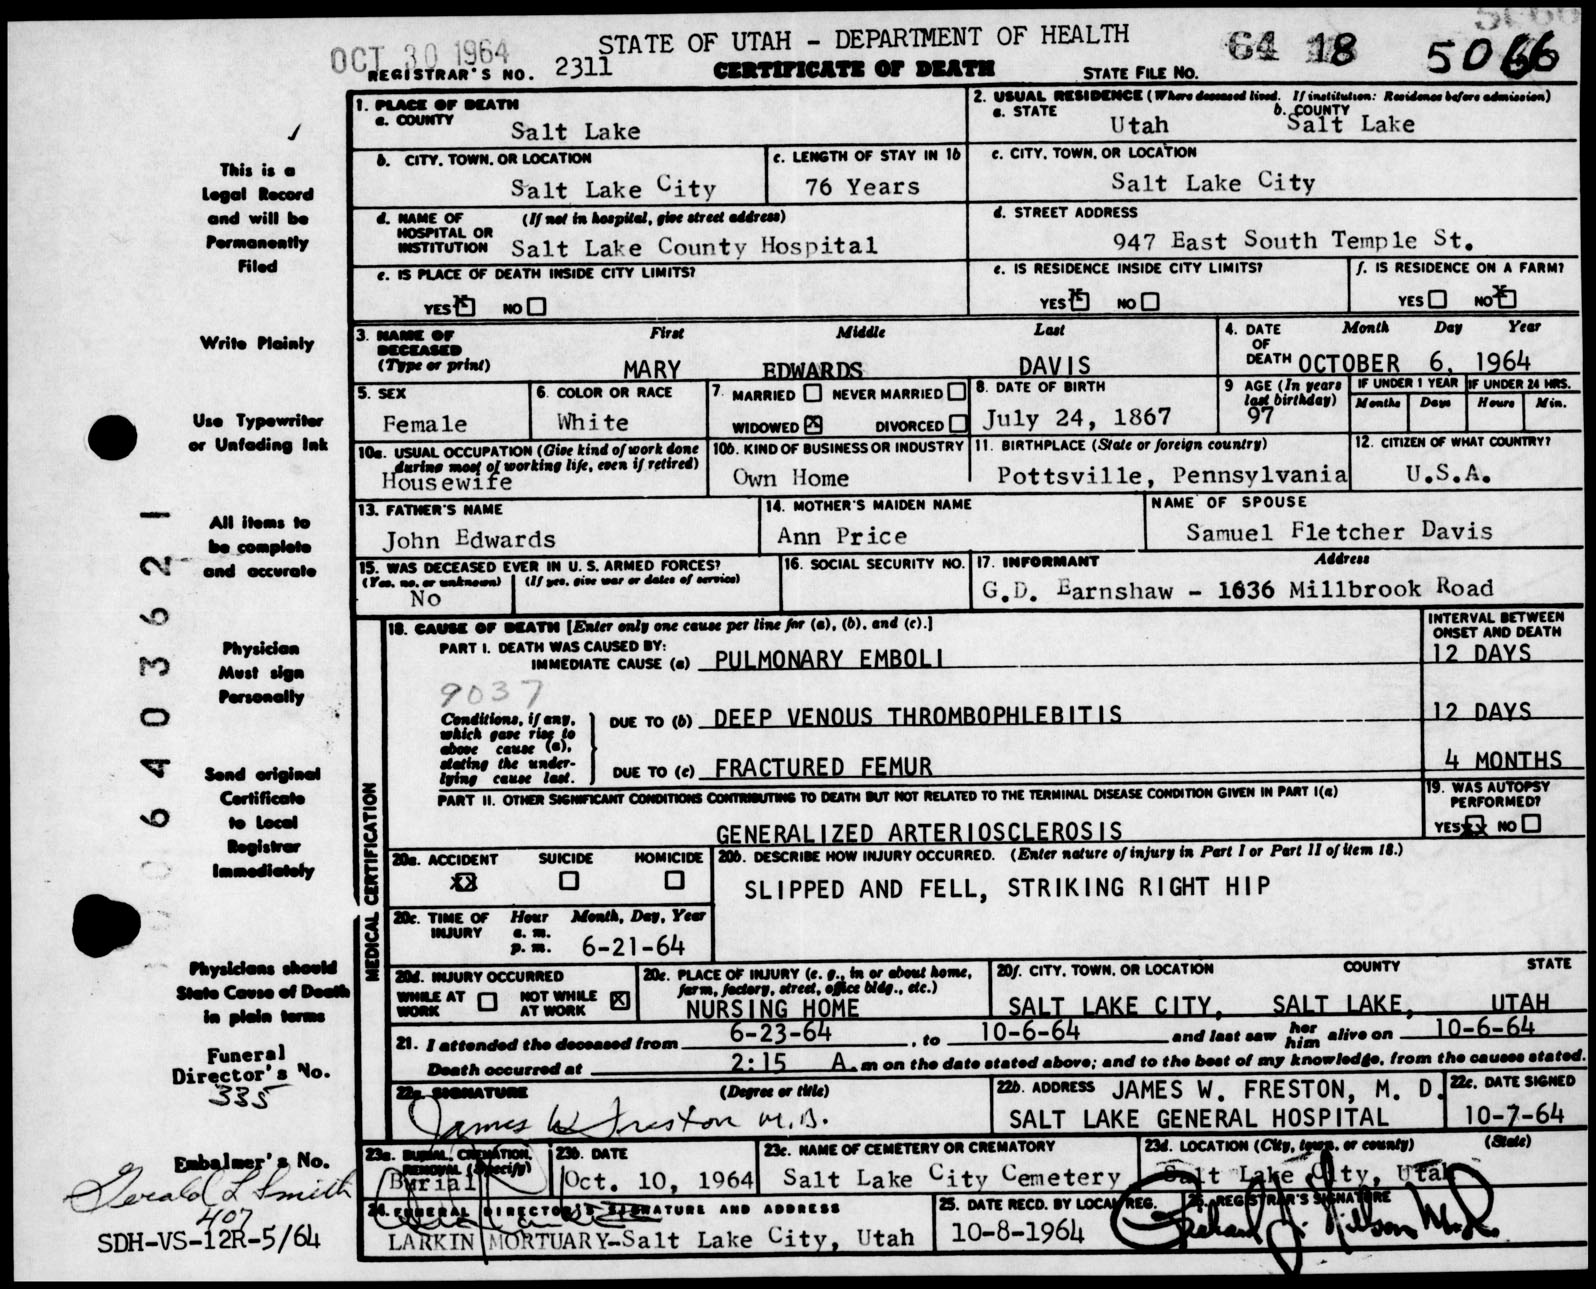 OCT 30 1964
STATE OF UTAH - DEPARTMENT OF HEALTH
64 18 5066
REGISTRAR'S NO. 2311
CERTIFICATE OF DEATH
STATE FILE NO.
This is a
Legal Record
and will be
Permanently
Filed
Write Plainly
Use Typewriter
or Unfading Ink
All items to
be complete
and accurate
Physician
Must sign
Personally
Send original
Certificate
to Local
Registrar
Immediately
Physicians should
State Cause of Death
in plain terms
Funeral
Director's No.
335
Embalmer's No.
Gerald L Smith
407
SDH-VS-12R-5/64
1. PLACE OF DEATH
a. COUNTY
Salt Lake
2. USUAL RESIDENCE (Where deceased lived. If institution: Residence before admission)
a. STATE
Utah
b. COUNTY
Salt Lake
b. CITY, TOWN, OR LOCATION
Salt Lake City
c. LENGTH OF STAY IN 1b
76 Years
c. CITY, TOWN, OR LOCATION
Salt Lake City
d. NAME OF HOSPITAL OR INSTITUTION (If not in hospital, give street address)
Salt Lake County Hospital
d. STREET ADDRESS
947 East South Temple St.
e. IS PLACE OF DEATH INSIDE CITY LIMITS?
YES X NO
e. IS RESIDENCE INSIDE CITY LIMITS?
YES X NO
f. IS RESIDENCE ON A FARM?
YES NO X
3. NAME OF DECEASED (Type or print)
First Middle Last
MARY EDWARDS DAVIS
4. DATE OF DEATH
Month Day Year
OCTOBER 6, 1964
5. SEX
Female
6. COLOR OR RACE
White
7. MARRIED NEVER MARRIED
WIDOWED X DIVORCED
8. DATE OF BIRTH
July 24, 1867
9 AGE (In years last birthday)
97
IF UNDER 1 YEAR
Months Days
IF UNDER 24 HRS.
Hours Min.
10a. USUAL OCCUPATION (Give kind of work done during most of working life, even if retired)
Housewife
10b. KIND OF BUSINESS OR INDUSTRY
Own Home
11. BIRTHPLACE (State or foreign country)
Pottsville, Pennsylvania
12. CITIZEN OF WHAT COUNTRY?
U.S.A.
13. FATHER'S NAME
John Edwards
14. MOTHER'S MAIDEN NAME
Ann Price
NAME OF SPOUSE
Samuel Fletcher Davis
15. WAS DECEASED EVER IN U.S. ARMED FORCES?
(Yes, no, or unknown) (If yes, give war or dates of service)
No
16. SOCIAL SECURITY NO.
17. INFORMANT Address
G.D. Earnshaw - 1636 Millbrook Road
MEDICAL CERTIFICATION
18. CAUSE OF DEATH [Enter only one cause per line for (a), (b), and (c).]
INTERVAL BETWEEN ONSET AND DEATH
PART I. DEATH WAS CAUSED BY:
IMMEDIATE CAUSE (a) PULMONARY EMBOLI
12 DAYS
9037
Conditions, if any, which gave rise to above cause (a), stating the underlying cause last.
DUE TO (b) DEEP VENOUS THROMBOPHLEBITIS
12 DAYS
DUE TO (c) FRACTURED FEMUR
4 MONTHS
PART II. OTHER SIGNIFICANT CONDITIONS CONTRIBUTING TO DEATH BUT NOT RELATED TO THE TERMINAL DISEASE CONDITION GIVEN IN PART I(a)
GENERALIZED ARTERIOSCLEROSIS
19. WAS AUTOPSY PERFORMED?
YES XX NO
20a. ACCIDENT SUICIDE HOMICIDE
XX
20b. DESCRIBE HOW INJURY OCCURRED. (Enter nature of injury in Part I or Part II of item 18.)
SLIPPED AND FELL, STRIKING RIGHT HIP
20c. TIME OF INJURY
Hour Month, Day, Year
a. m.
p. m. 6-21-64
20d. INJURY OCCURRED
WHILE AT WORK NOT WHILE AT WORK X
20e. PLACE OF INJURY (e. g., in or about home, farm, factory, street, office bldg., etc.)
NURSING HOME
20f. CITY, TOWN, OR LOCATION COUNTY STATE
SALT LAKE CITY, SALT LAKE, UTAH
21. I attended the deceased from 6-23-64, to 10-6-64 and last saw her him alive on 10-6-64
Death occurred at 2:15 A. m on the date stated above; and to the best of my knowledge, from the causes stated.
22a. SIGNATURE (Degree or title)
James W Freston M.D.
22b. ADDRESS JAMES W. FRESTON, M. D.
SALT LAKE GENERAL HOSPITAL
22c. DATE SIGNED
10-7-64
23a. BURIAL, CREMATION, REMOVAL (Specify)
Burial
23b. DATE
Oct. 10, 1964
23c. NAME OF CEMETERY OR CREMATORY
Salt Lake City Cemetery
23d. LOCATION (City, town, or county) (State)
Salt Lake City, Utah
24. FUNERAL DIRECTOR'S SIGNATURE AND ADDRESS
LARKIN MORTUARY-Salt Lake City, Utah
25. DATE RECD. BY LOCAL REG.
10-8-1964
26. REGISTRAR'S SIGNATURE